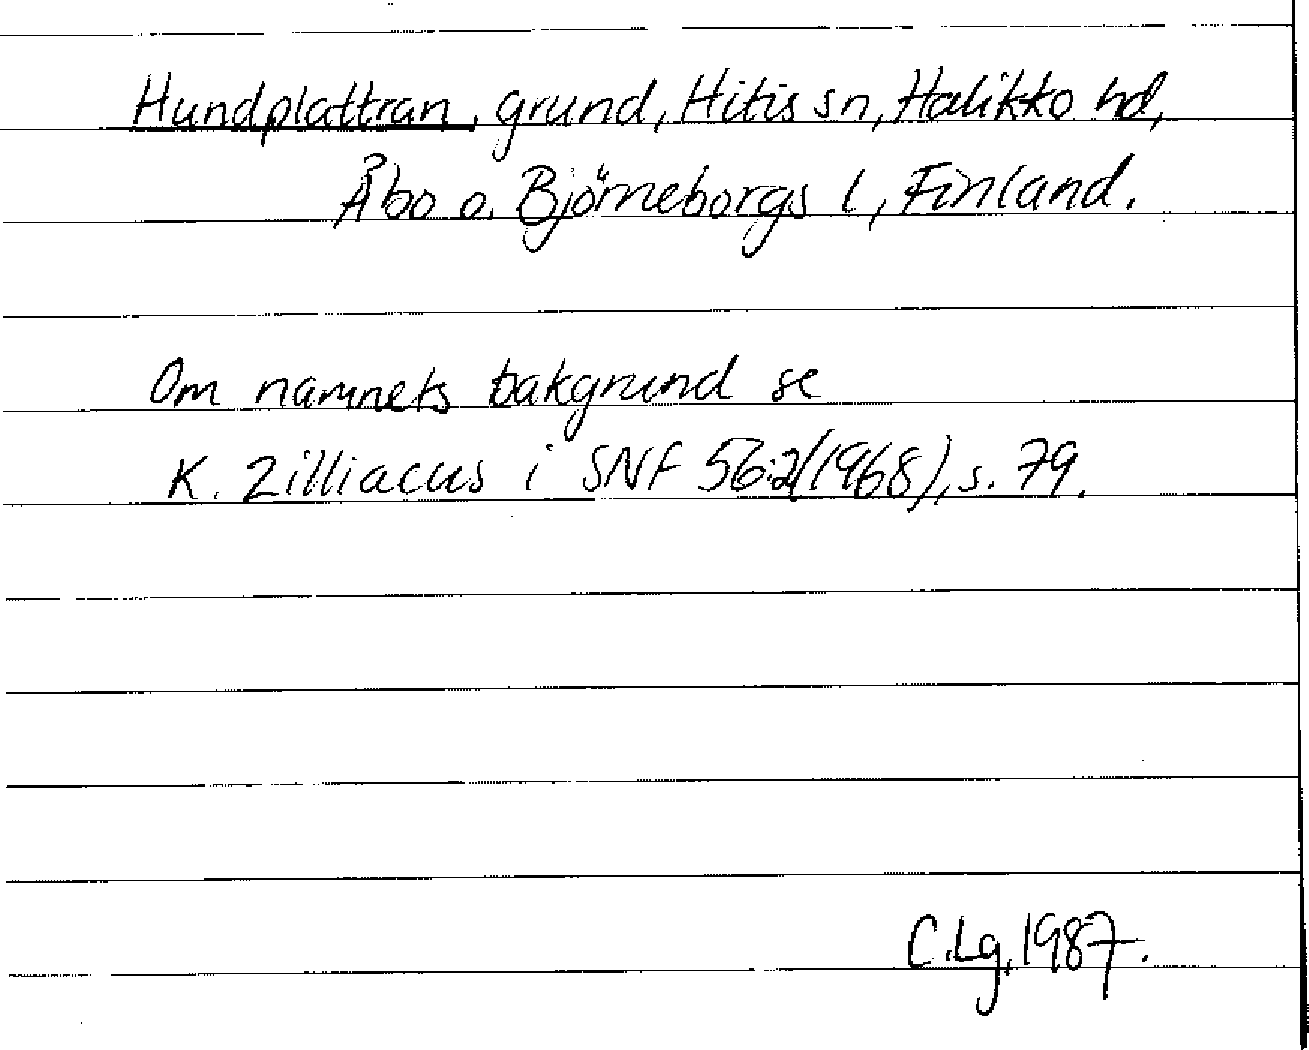 Hundplattran, grund, Hitis sn, Halikko hd,
Åbo o. Björneborgs l, Finland.
Om namnets bakgrund se
K. Zilliacus i SNF 56:2(1968), s. 79.
C.Lg, 1987.